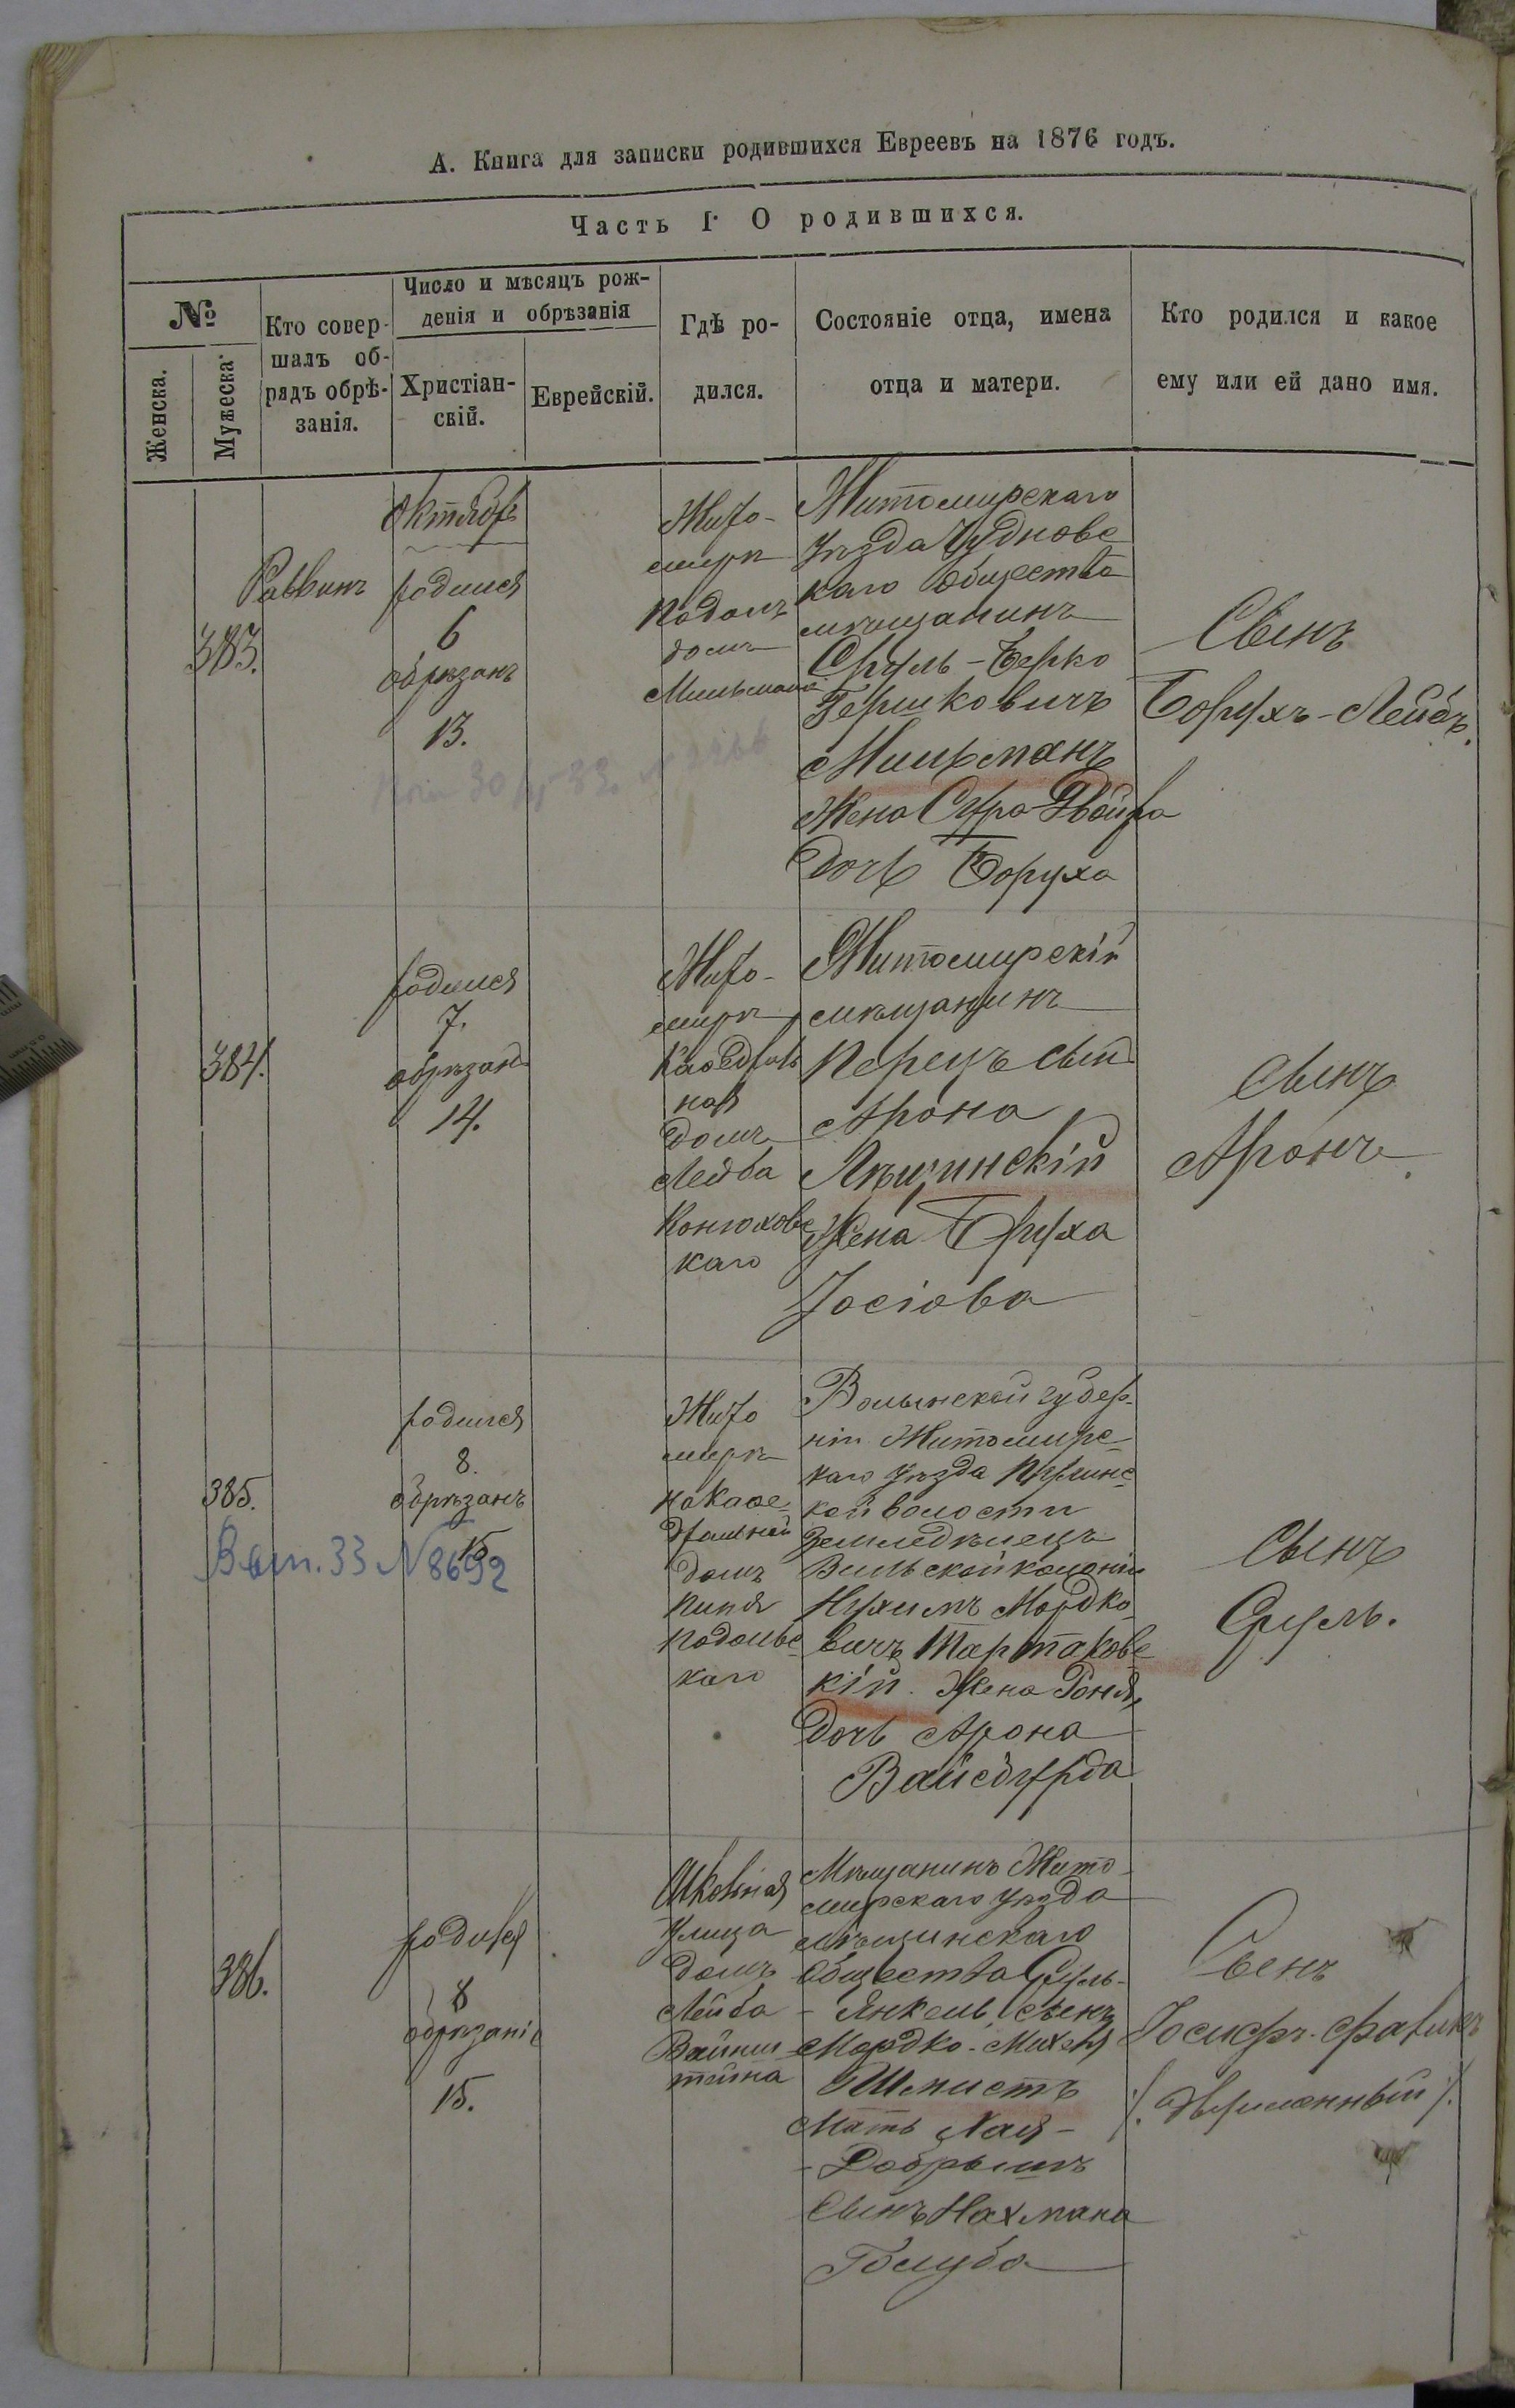 А. Книга для записки родившихся Евреевъ на 1876 годъ.
Часть I. О родившихся.
№
Женска.
Мужеска.
Кто совер-
шалъ об-
рядъ обрѣ-
занія.
Число и мѣсяцъ рож-
денія и обрѣзанія
Христіан-
скій.
Еврейскій.
Гдѣ ро-
дился.
Состояніе отца, имена
отца и матери.
Кто родился и какое
ему или ей дано имя.
383.
Раввинъ
Октябрь
родился
6
обрѣзанъ
13.
Жито-
миръ
Подолъ
домъ
Мильмана
Житомирскаго
уѣзда Чудновс
каго Общества
мѣщанинъ
Сруль-Берко
Гершковичъ
Мильманъ
Жена Сура-Двойра
дочь Боруха
Сынъ
Борухъ-Лейбъ.
384.
родился
7.
обрѣзанъ
14.
Жито-
миръ
Каѳедраль
ная
домъ
Лейба
Конюховс
каго
Житомирскій
мѣщанинъ
Перецъ сын
Арона
Лѣщинскій
Жена Бруха
Іосіова
Сынъ
Аронъ.
385.
родился
8.
обрѣзанъ
15.
Вып. 33 N 8692
Жито
миръ
на Каѳе-
дральной
домъ
Пиня
Подольс
каго
Волынской губер-
ніи Житомирс-
каго уѣзда
кой волости
Земледѣлецъ
Вильской колоніи
Нухимъ Мордко-
вичъ Тартаковс
кій. Жена Роня,
дочь Арона
Вайсбурда
Сынъ
Сруль.
386.
родился
8
обрѣзаніе
15.
Школьная
улица
домъ
Лейба
Вайнш
тейна
Мѣщанинъ Жито-
мирскаго уѣзда
общества Сруль-
- Янкель, сынъ
Мордко-Михеля
Шмистъ
Мать Хая-
- Добрышъ
Сынъ Нахмана
Голуба
Сынъ